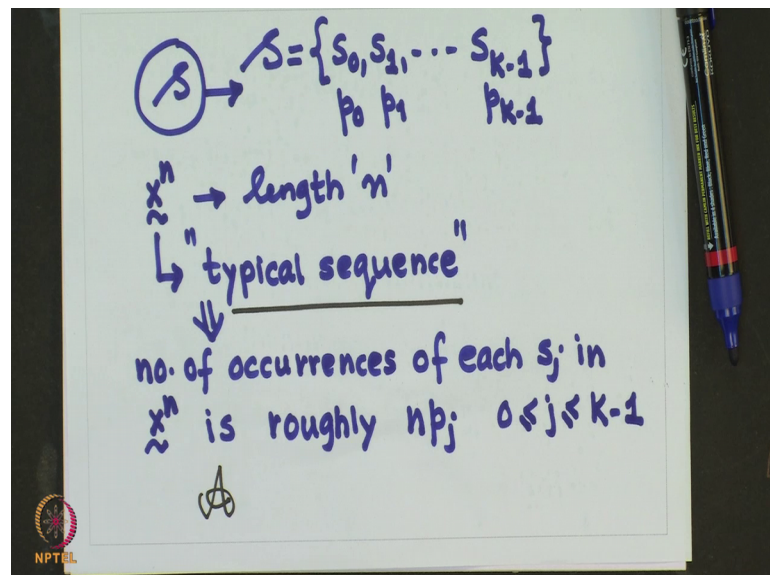 S → S = {S₀, S₁, --- S_K-1}
p₀ p₁ p_K-1
xⁿ → length 'n'
↳ "typical sequence"
⇓
no. of occurrences of each sⱼ in
xⁿ is roughly npⱼ 0 ≤ j ≤ K-1
A
NPTEL